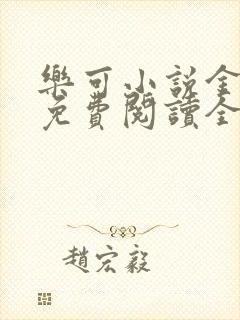 樂可小説全
免費閱讀全
趙宏毅